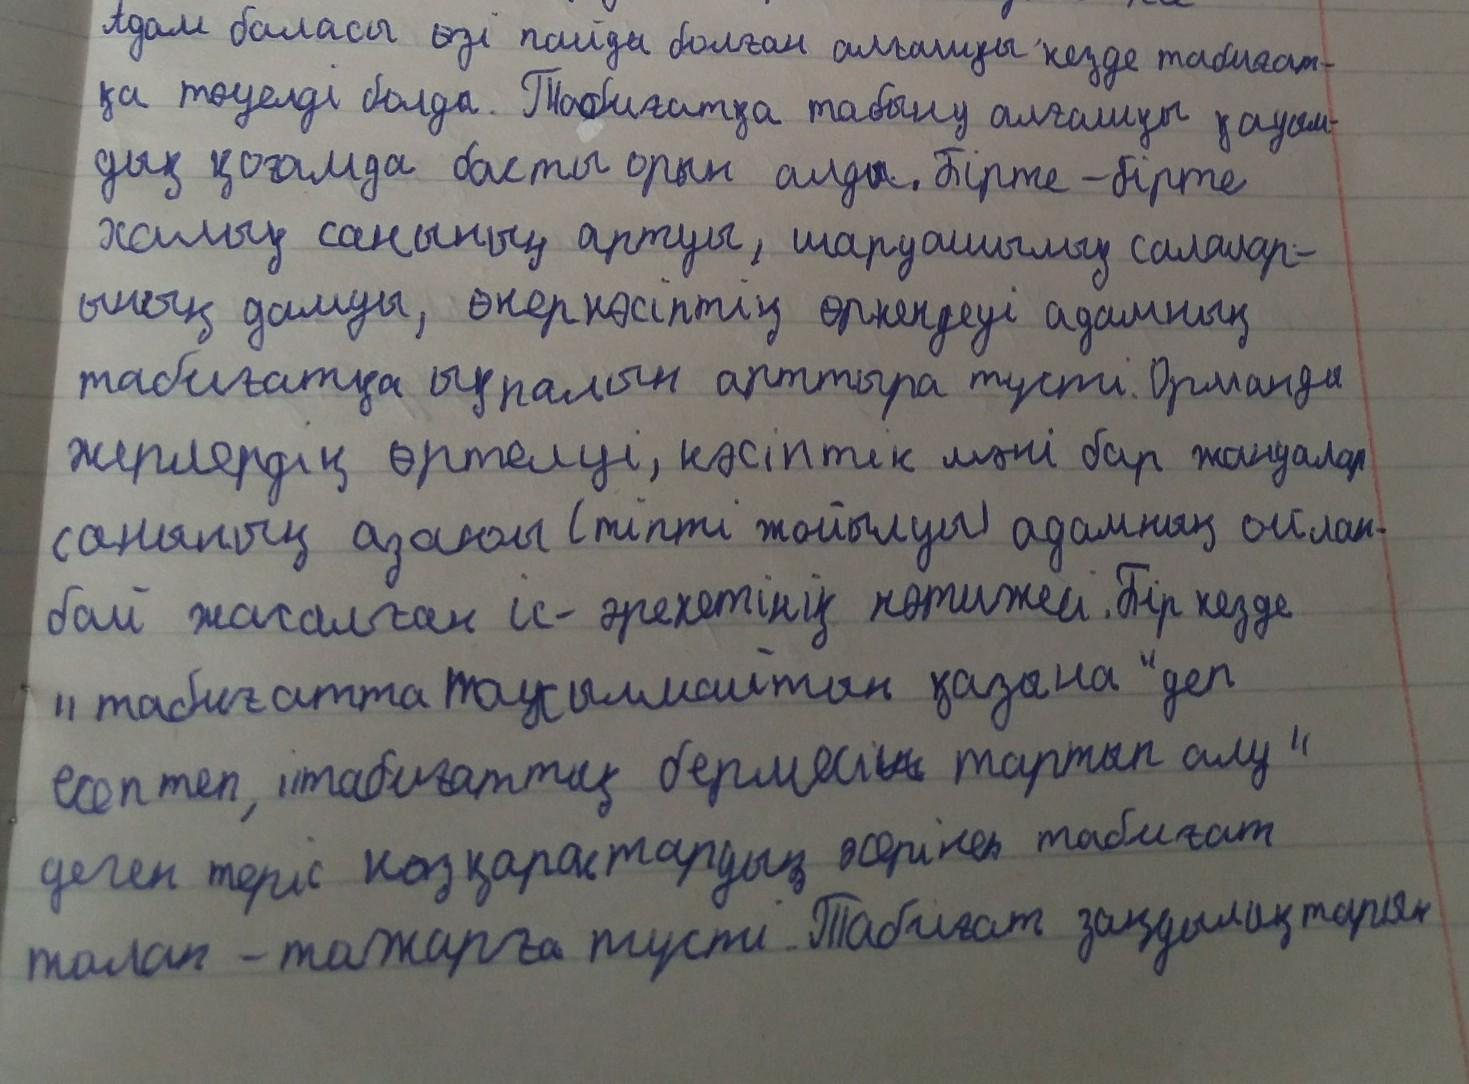 Адам баласы өзі пайда болған алғашқы кезде табиғат-
қа тәуелді болда. Табиғатқа табыну алғашқы қауым-
дық қоғамда басты орын алды. Бірте-бірте
халық санының артуы, шаруашылық салалар-
ының дамуы, өнеркәсіптің өркендеуі адамның
табиғатқа ықпалын арттыра түсті. Орманды
жерлердің өртелуі, кәсіптік мәні бар жануалар
санының азаюы (тіпті жойылуы) адамның ойлан-
бай жасалған іс-әрекетінің нәтижесі. Бір кезде
"табиғатта таусылмайтын қазына" деп
есептеп, "табиғаттың бермесін тартып алу"
деген теріс көзқарастардың әсерінен табиғат
талан-таражға түсті. Табиғат заңдылықтарын